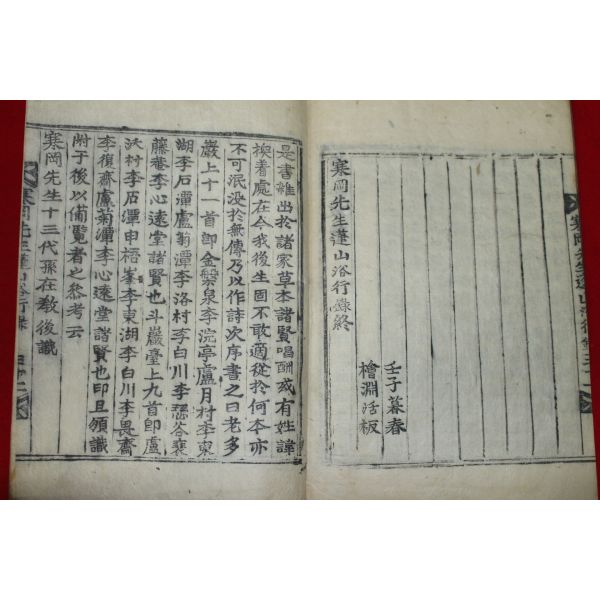 寒岡先生蓬山浴行錄終
壬子暮春
檜淵活板
是書雜出於諸家草本諸賢唱酬或有姓諱
換着處在今我後生固不敢適從於何本亦
不可泯没於無傳乃以作詩次序書之曰老多
巖上十一首卽金槃泉李浣亭盧月村李東
湖李石潭盧菊潭李洛村李白川李
藤菴李心遠堂諸賢也斗巖臺上九首卽盧
沃村李石潭申梧峯李東湖李白川李畏齋
李復齋盧菊潭李心遠堂諸賢也印且願識
附于後以備覽者之參考云
寒岡先生十三代孫在敎後識